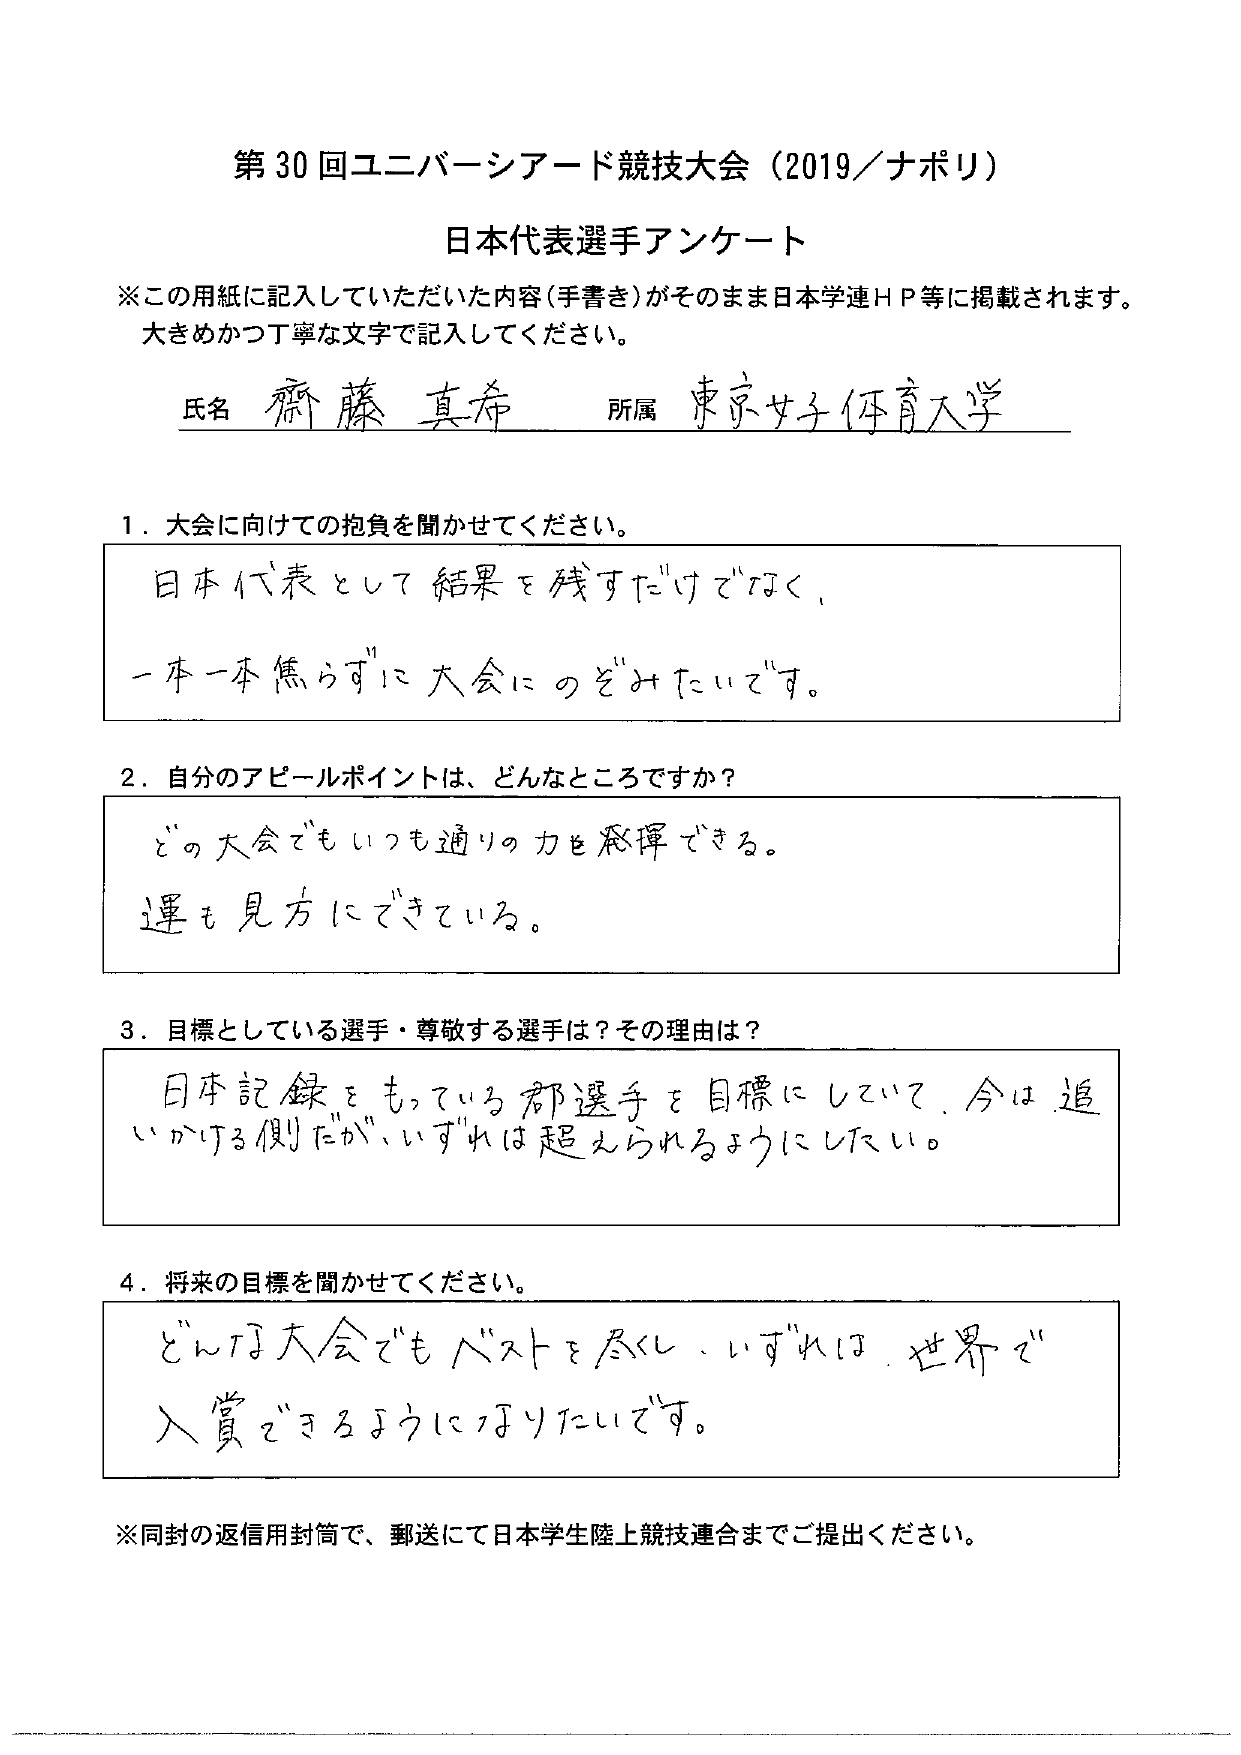 第30回ユニバーシアード競技大会（2019／ナポリ）
日本代表選手アンケート
※この用紙に記入していただいた内容（手書き）がそのまま日本学連ＨＰ等に掲載されます。
大きめかつ丁寧な文字で記入してください。
氏名 齋藤 真希 所属 東京女子体育大学
１．大会に向けての抱負を聞かせてください。
日本代表として結果を残すだけでなく、
一本一本焦らずに大会にのぞみたいです。
２．自分のアピールポイントは、どんなところですか？
どの大会でもいつも通りの力を発揮できる。
運も見方にできている。
３．目標としている選手・尊敬する選手は？その理由は？
日本記録をもっている郡選手を目標にしていて、今は追
いかける側だが、いずれは超えられるようにしたい。
４．将来の目標を聞かせてください。
どんな大会でもベストを尽くし、いずれは、世界で
入賞できるようになりたいです。
※同封の返信用封筒で、郵送にて日本学生陸上競技連合までご提出ください。